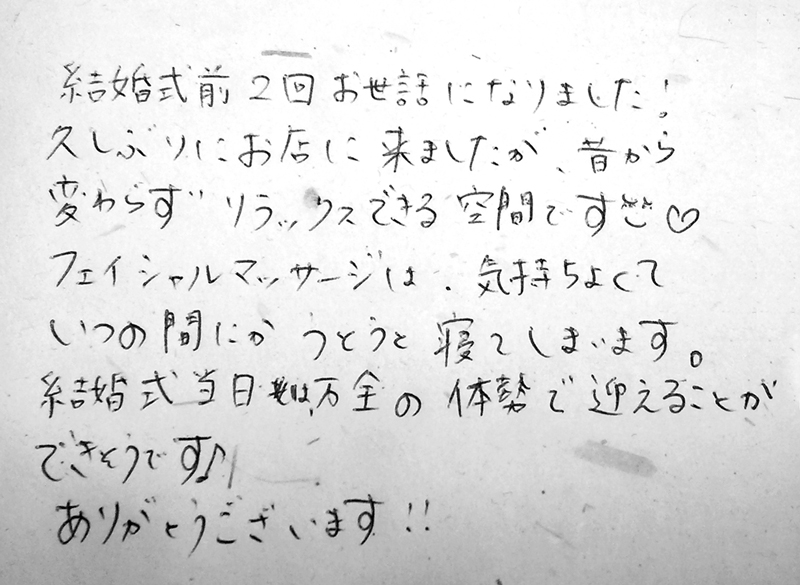 結婚式前2回お世話になりました!
久しぶりにお店に来ましたが、昔から
変わらずリラックスできる空間です♡
フェイシャルマッサージは、気持ちよくて
いつの間にかうとうと寝てしまいます。
結婚式当日は、万全の体勢で迎えることが
できそうです♪
ありがとうございます!!